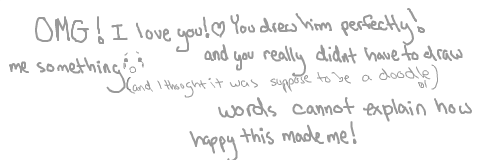 OMG! I love you!♡ You drew him perfectly!
me something and you really didnt have to draw
(and I thought it was suppose to be a doodle)
words cannot explain how
happy this made me!